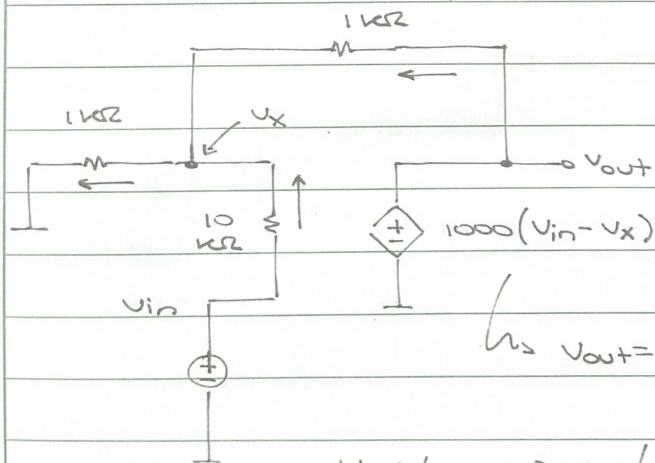 1 kΩ
1 kΩ
Vx
Vout
10
kΩ
1000(Vin - Vx)
Vin
Vout =